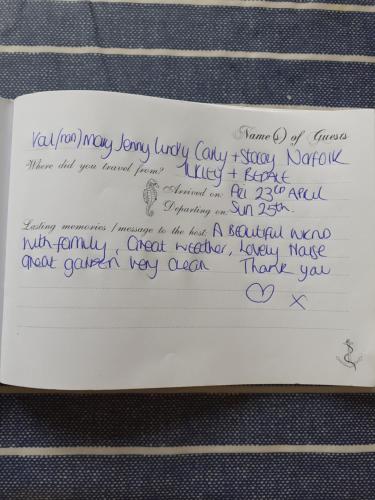 Name(s) of Guests
Val/(nan) Mary Jenny Lucky Carly + Stacey Norfolk
Where did you travel from? + 
Arrived on: Fri 23rd APRIL
Departing on: Sun 25th.
Lasting memories / message to the host: A Beautiful
with family, Great weather, Lovely House
Great garden very clean Thank you
X